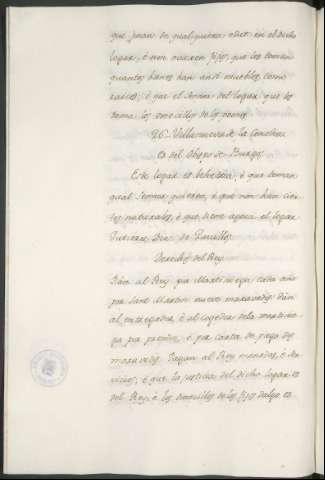 que sean de qual quiera edat en el dicho
logar, é non oviesen fijos, que los toman
quantos bienes han ansi muebles como
raices; é que el Señor del logar que les
toma los omecillos de los omes.
26. Villanueva de la
es del Obispo de Burgos.
Este logar es behetria, é que toman
qual Señor quieren, é que non han cier
tos naturales, é que tiene agora el logar
Gutierre Diaz de
Derechos del Rey
Dan al Rey por Martiniega cada año
por Sant Martin nueve maravedis dan
al entregador, é al cogedor de la martinie
ga por, é por carta de pago dos
maravedis. Pagan al Rey monedas, é ser
vicios, é que la justicia del dicho logar es
del Rey, é los omecillos de los fijos dalgo es